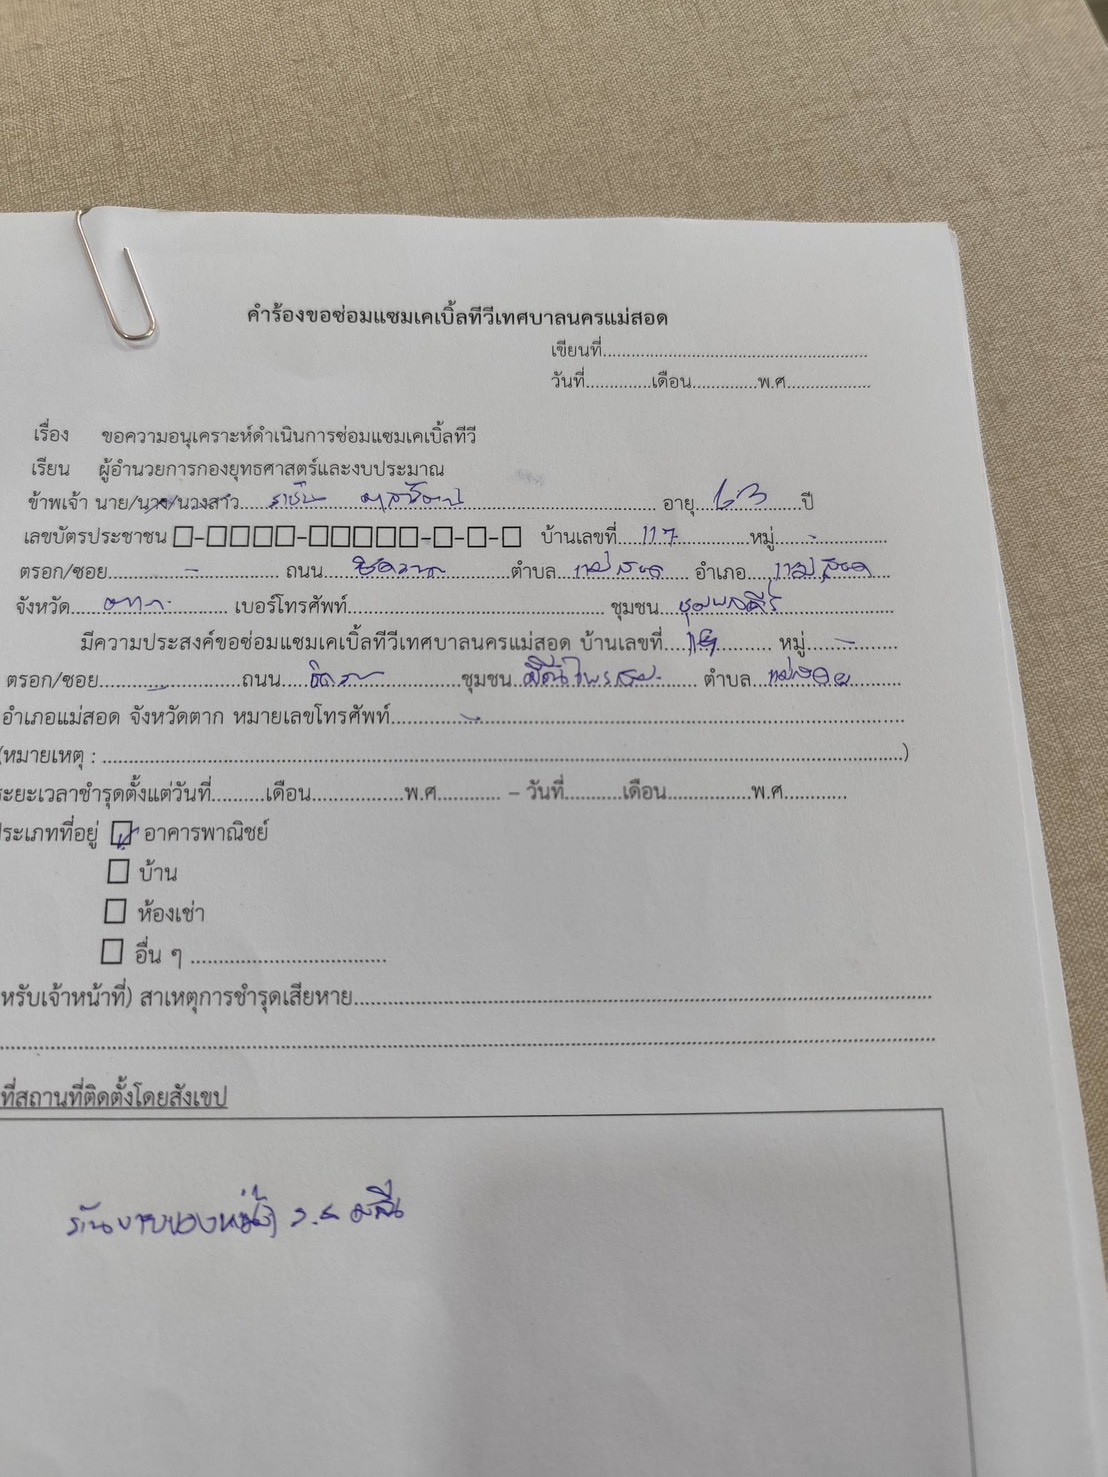 คำร้องขอซ่อมแซมเคเบิ้ลทีวีเทศบาลนครแม่สอด
เขียนที่..........
วันที่..........เดือน..........พ.ศ..........
เรื่อง ขอความอนุเคราะห์ดำเนินการซ่อมแซมเคเบิ้ลทีวี
เรียน ผู้อำนวยการกองยุทธศาสตร์และงบประมาณ
ข้าพเจ้า นาย/นาง/นางสาว.......... อายุ 63 ปี
เลขบัตรประชาชน □-□□□□-□□□□□-□-□-□ บ้านเลขที่ 117 หมู่ -
ตรอก/ซอย - ถนน ตำบล แม่สอด อำเภอ แม่สอด
จังหวัด ตาก เบอร์โทรศัพท์.......... ชุมชน
มีความประสงค์ขอซ่อมแซมเคเบิ้ลทีวีเทศบาลนครแม่สอด บ้านเลขที่ หมู่ -
ตรอก/ซอย - ถนน ชุมชน ตำบล แม่สอด
อำเภอแม่สอด จังหวัดตาก หมายเลขโทรศัพท์ -
(หมายเหตุ : ..........)
ระยะเวลาชำรุดตั้งแต่วันที่..........เดือน..........พ.ศ.......... – วันที่..........เดือน..........พ.ศ..........
ประเภทที่อยู่ ☑ อาคารพาณิชย์
□ บ้าน
□ ห้องเช่า
□ อื่น ๆ ..........
หรับเจ้าหน้าที่) สาเหตุการชำรุดเสียหาย..........
ที่สถานที่ติดตั้งโดยสังเขป
ร้านขายของ